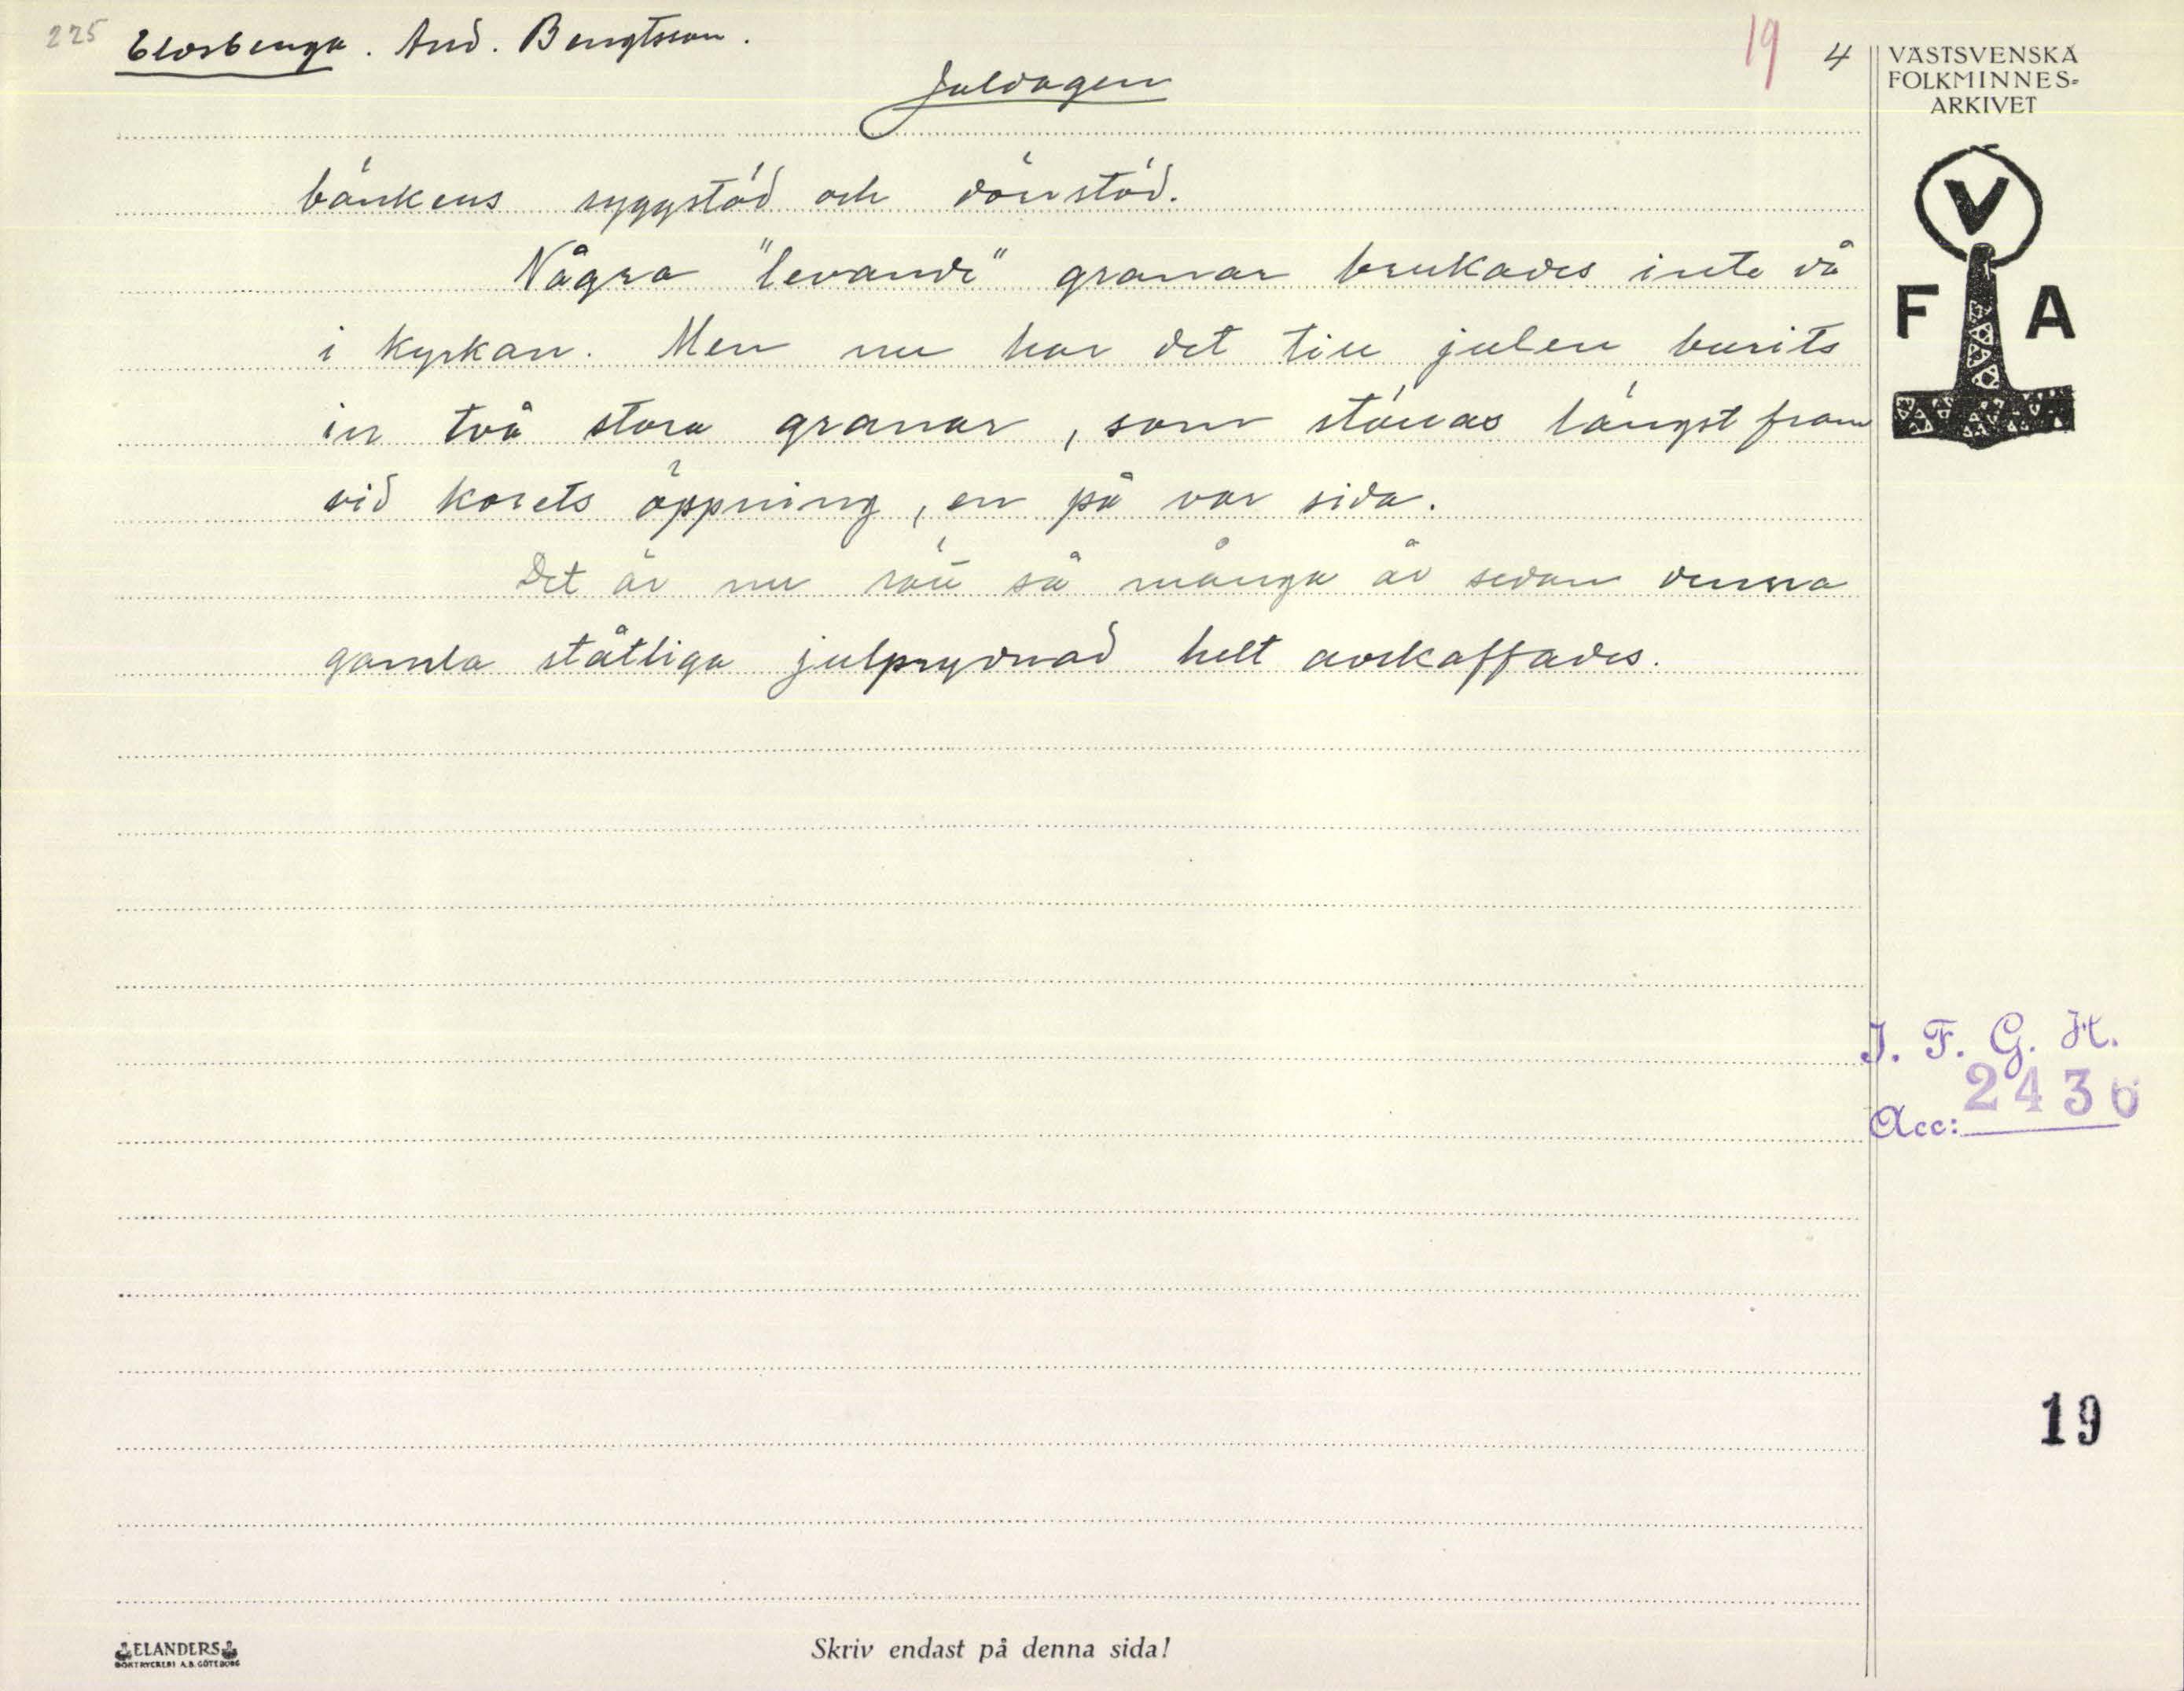 225 Elvsbenga. And. Bengtsson. 19 4
Juldagen
bänkens ryggstöd och dörrstöd.
Några "levande" granar brukades inte då
i kyrkan. Men nu har det till julen burits
in två stora granar, som ställas längst fram
vid korets öppning, en på var sida.
Det är nu rätt så många år sedan denna
gamla ståtliga julprydnad helt avskaffades.
VÄSTSVENSKA
FOLKMINNES-
ARKIVET
V
F A
I. F. G. H.
2436
Acc:
19
ELANDERS
BOKTRYCKERI A.B. GÖTEBORG
Skriv endast på denna sida!